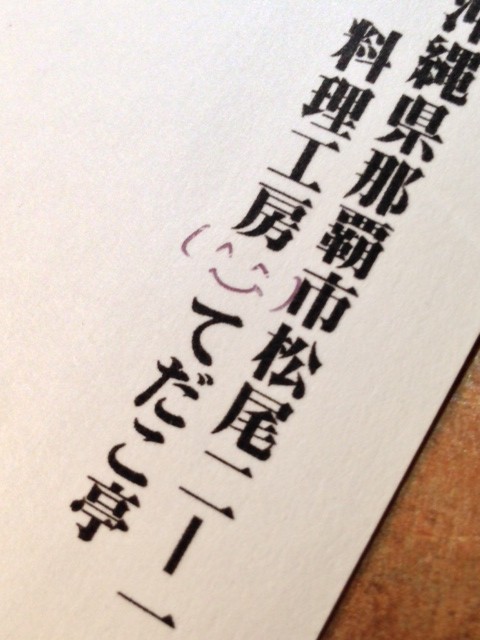 沖縄県那覇市松尾二ー一
料理工房(^‿^)てだこ亭